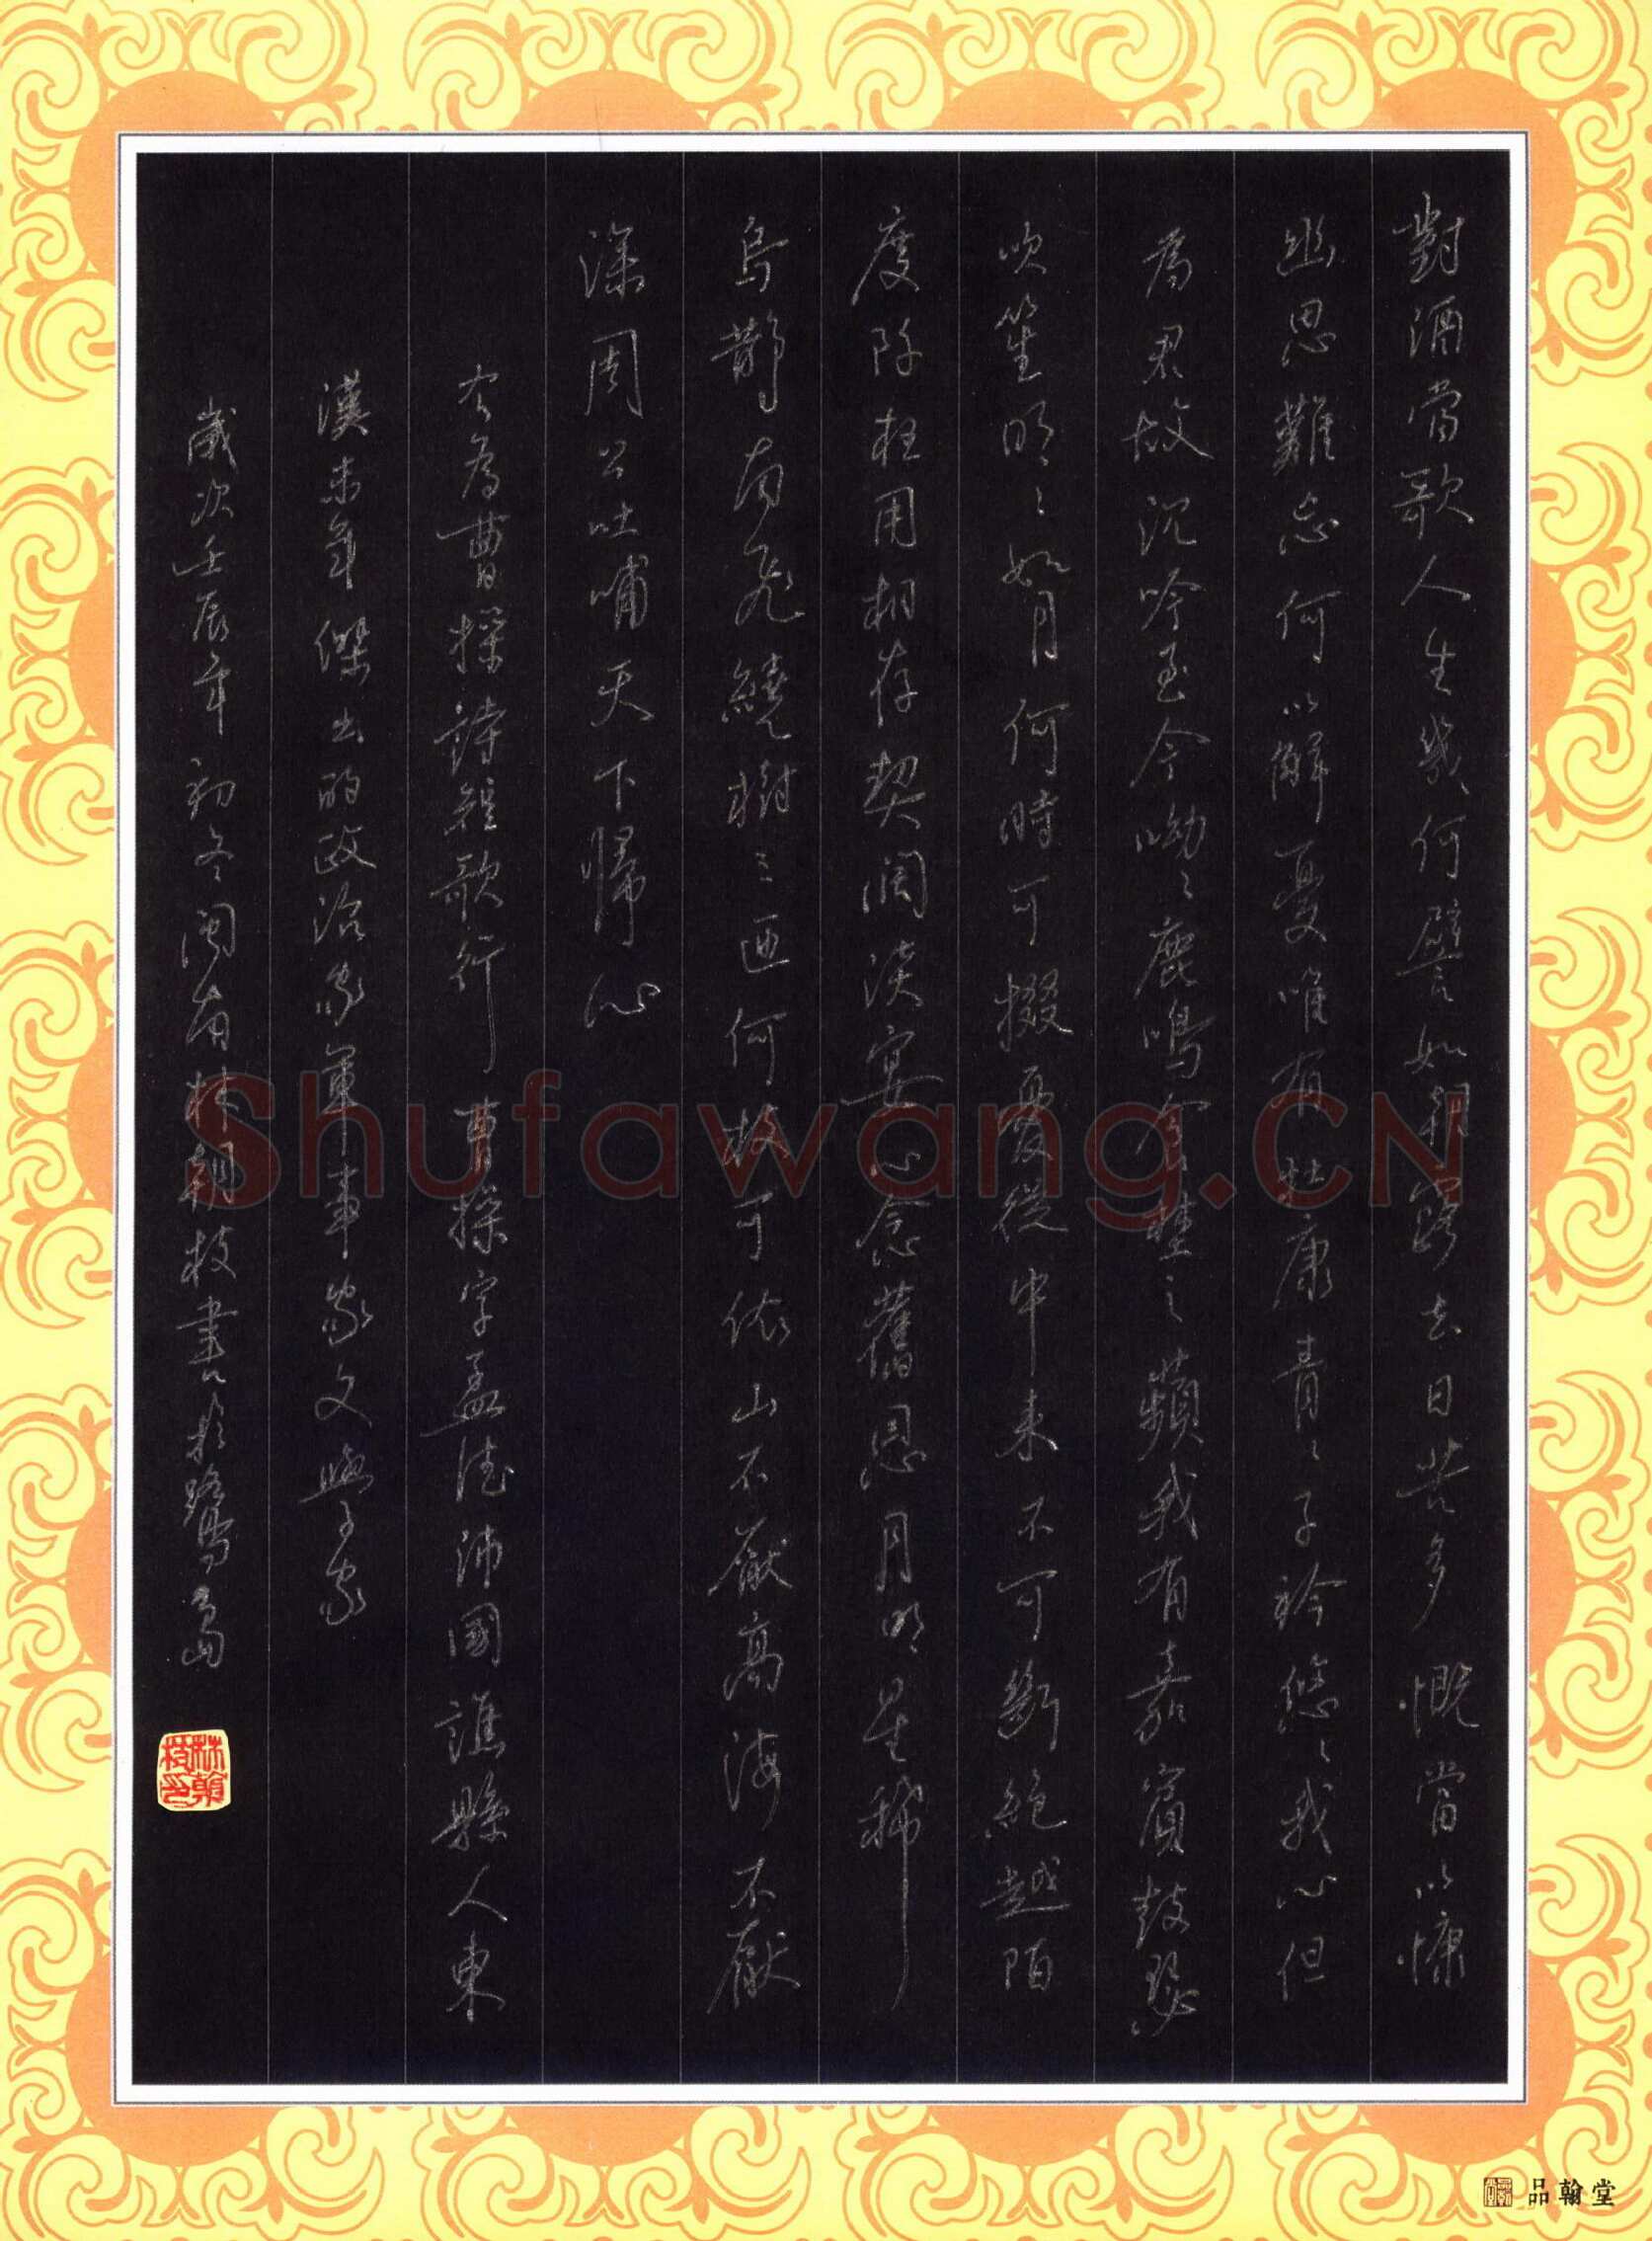 對酒當歌人生幾何譬如朝露去日苦多慨當以慷
幽思難忘何以解憂唯有杜康青々子衿悠々我心但
為君故沉吟至今呦々鹿鳴食野之蘋我有嘉賓鼓瑟
吹笙明々如月何時可掇憂從中来不可斷絕越陌
度阡枉用相存契闊談宴心念舊恩月明星稀
烏鵲南飛繞樹三匝何枝可依山不厭高海不厭
深周公吐哺天下歸心
右為曹操詩短歌行 曹操字孟德沛國譙縣人東
漢末年傑出的政治家軍事家文學家
歲次壬辰年初冬閩南林朝枝書於鷺島
林朝枝印
Shufawang.CN
品翰堂